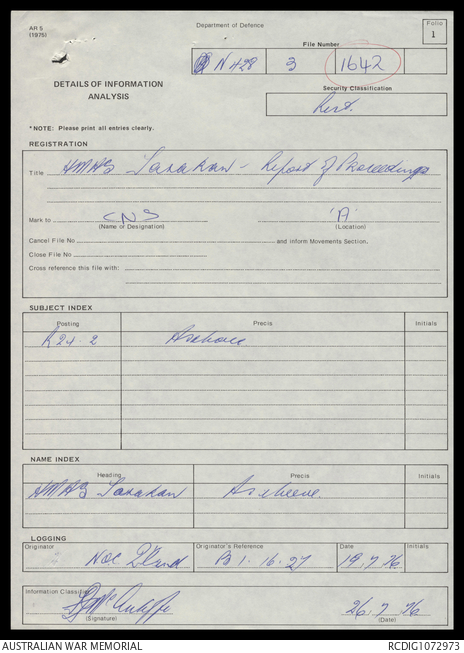 AR 5
(1975)
Department of Defence
Folio
1
File Number
N 428 3 1642
DETAILS OF INFORMATION
ANALYSIS
Security Classification
Rest.
*NOTE: Please print all entries clearly.
REGISTRATION
Title HMAS Tarakan - Report of Proceedings
Mark to CNS 'A'
(Name or Designation) (Location)
Cancel File No and inform Movements Section.
Close File No
Cross reference this file with:
SUBJECT INDEX
Posting Precis Initials
R24-2 As above
NAME INDEX
Heading Precis Initials
HMAS Tarakan As above
LOGGING
Originator Originator's Reference Date Initials
NOC Qland B 1.16.27 19.7.76
Information Classifier
(Signature)
26.7.76
(Date)
AUSTRALIAN WAR MEMORIAL
RCDIG1072973